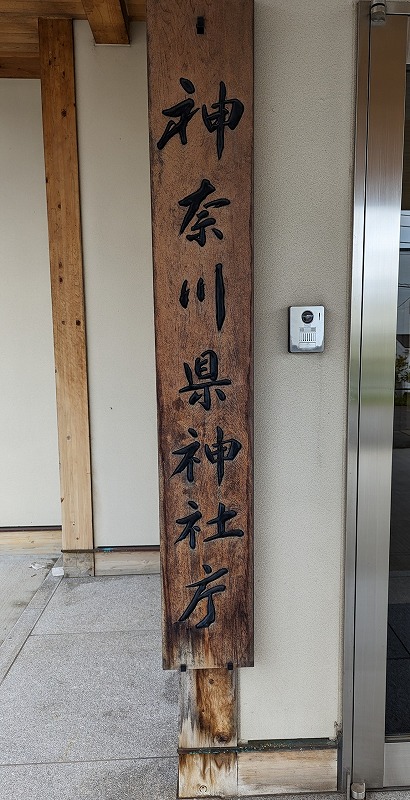 神奈川県神社庁